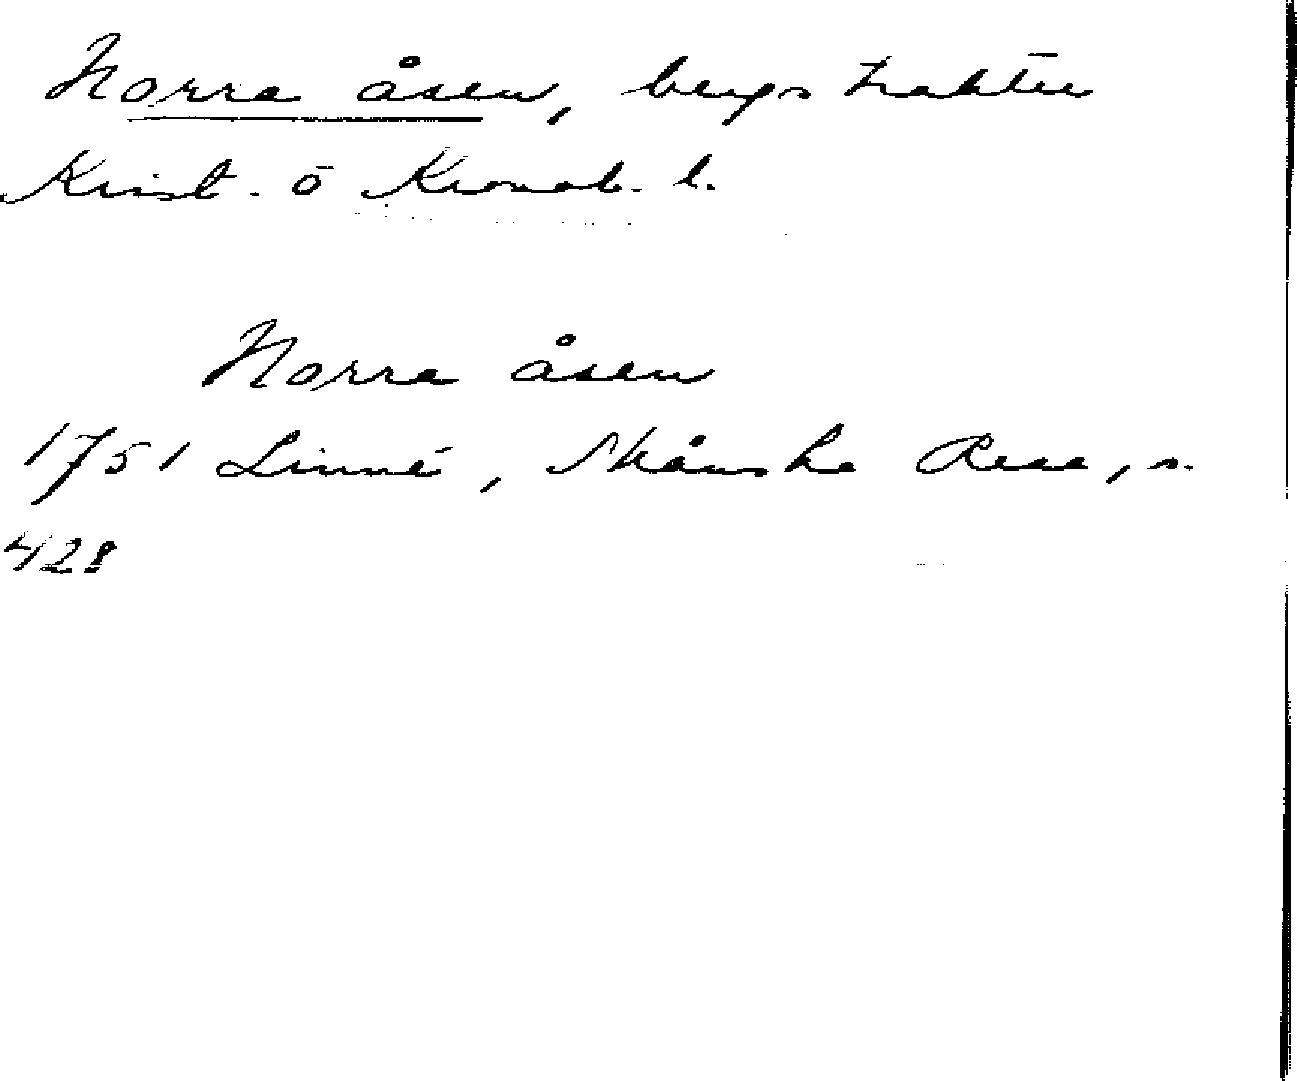 Norra åsen, bergstrakten
Krist. o Kronob. l.
Norra åsen
1751 Linné, Skånska Resa, s.
428